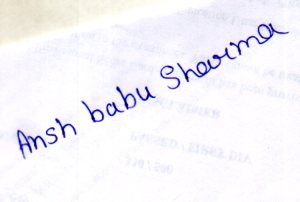 Ansh babu Sharma